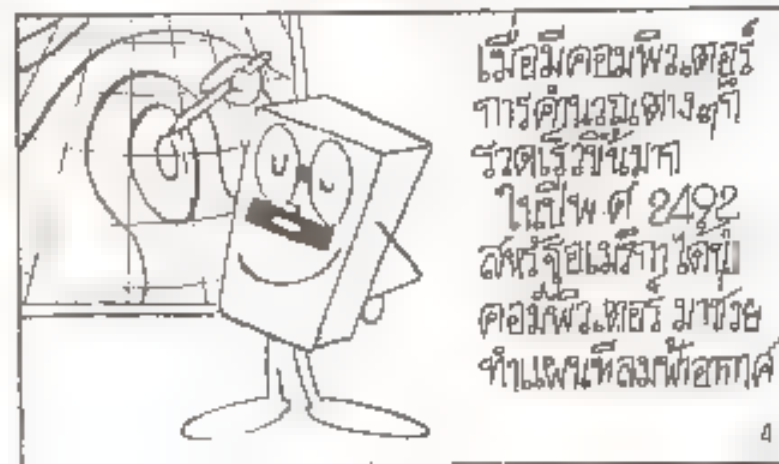 เมื่อมีคอมพิวเตอร์
การคำนวณต่างๆก็
รวดเร็วขึ้นมาก
ในปีพ.ศ 2492
สหรัฐอเมริกาได้นำ
คอมพิวเทอร์ มาช่วย
ทำแผนที่ลมฟ้าอากาศ
4